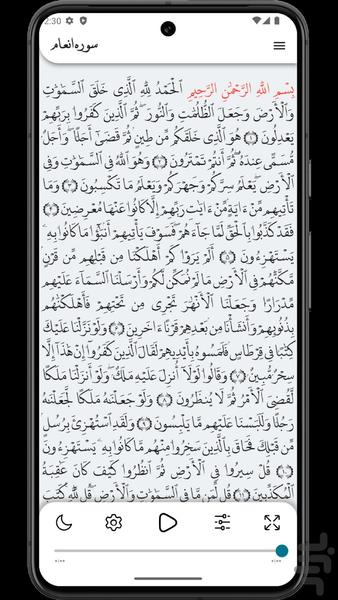 2:30
سوره انعام
بِسْمِ ٱللَّهِ ٱلرَّحْمَٰنِ ٱلرَّحِيمِ ٱلْحَمْدُ لِلَّهِ ٱلَّذِى خَلَقَ ٱلسَّمَٰوَٰتِ
وَٱلْأَرْضَ وَجَعَلَ ٱلظُّلُمَٰتِ وَٱلنُّورَ ۖ ثُمَّ ٱلَّذِينَ كَفَرُوا۟ بِرَبِّهِمْ
يَعْدِلُونَ ﴿١﴾ هُوَ ٱلَّذِى خَلَقَكُم مِّن طِينٍ ثُمَّ قَضَىٰٓ أَجَلًا ۖ وَأَجَلٌ
مُّسَمًّى عِندَهُۥ ۖ ثُمَّ أَنتُمْ تَمْتَرُونَ ﴿٢﴾ وَهُوَ ٱللَّهُ فِى ٱلسَّمَٰوَٰتِ وَفِى
ٱلْأَرْضِ ۖ يَعْلَمُ سِرَّكُمْ وَجَهْرَكُمْ وَيَعْلَمُ مَا تَكْسِبُونَ ﴿٣﴾ وَمَا
تَأْتِيهِم مِّنْ ءَايَةٍ مِّنْ ءَايَٰتِ رَبِّهِمْ إِلَّا كَانُوا۟ عَنْهَا مُعْرِضِينَ ﴿٤﴾
فَقَدْ كَذَّبُوا۟ بِٱلْحَقِّ لَمَّا جَآءَهُمْ ۖ فَسَوْفَ يَأْتِيهِمْ أَنۢبَٰٓؤُا۟ مَا كَانُوا۟ بِهِۦ
يَسْتَهْزِءُونَ ﴿٥﴾ أَلَمْ يَرَوْا۟ كَمْ أَهْلَكْنَا مِن قَبْلِهِم مِّن قَرْنٍ
مَّكَّنَّٰهُمْ فِى ٱلْأَرْضِ مَا لَمْ نُمَكِّن لَّكُمْ وَأَرْسَلْنَا ٱلسَّمَآءَ عَلَيْهِم
مِّدْرَارًا وَجَعَلْنَا ٱلْأَنْهَٰرَ تَجْرِى مِن تَحْتِهِمْ فَأَهْلَكْنَٰهُم
بِذُنُوبِهِمْ وَأَنشَأْنَا مِنۢ بَعْدِهِمْ قَرْنًا ءَاخَرِينَ ﴿٦﴾ وَلَوْ نَزَّلْنَا عَلَيْكَ
كِتَٰبًا فِى قِرْطَاسٍ فَلَمَسُوهُ بِأَيْدِيهِمْ لَقَالَ ٱلَّذِينَ كَفَرُوٓا۟ إِنْ هَٰذَآ إِلَّا
سِحْرٌ مُّبِينٌ ﴿٧﴾ وَقَالُوا۟ لَوْلَآ أُنزِلَ عَلَيْهِ مَلَكٌ ۖ وَلَوْ أَنزَلْنَا مَلَكًا
لَّقُضِىَ ٱلْأَمْرُ ثُمَّ لَا يُنظَرُونَ ﴿٨﴾ وَلَوْ جَعَلْنَٰهُ مَلَكًا لَّجَعَلْنَٰهُ
رَجُلًا وَلَلَبَسْنَا عَلَيْهِم مَّا يَلْبِسُونَ ﴿٩﴾ وَلَقَدِ ٱسْتُهْزِئَ بِرُسُلٍ
مِّن قَبْلِكَ فَحَاقَ بِٱلَّذِينَ سَخِرُوا۟ مِنْهُم مَّا كَانُوا۟ بِهِۦ يَسْتَهْزِءُونَ
﴿١٠﴾ قُلْ سِيرُوا۟ فِى ٱلْأَرْضِ ثُمَّ ٱنظُرُوا۟ كَيْفَ كَانَ عَٰقِبَةُ
ٱلْمُكَذِّبِينَ ﴿١١﴾ قُل لِّمَن مَّا فِى ٱلسَّمَٰوَٰتِ وَٱلْأَرْضِ ۖ قُل لِّلَّهِ ۚ كَتَبَ
--:-- --:--